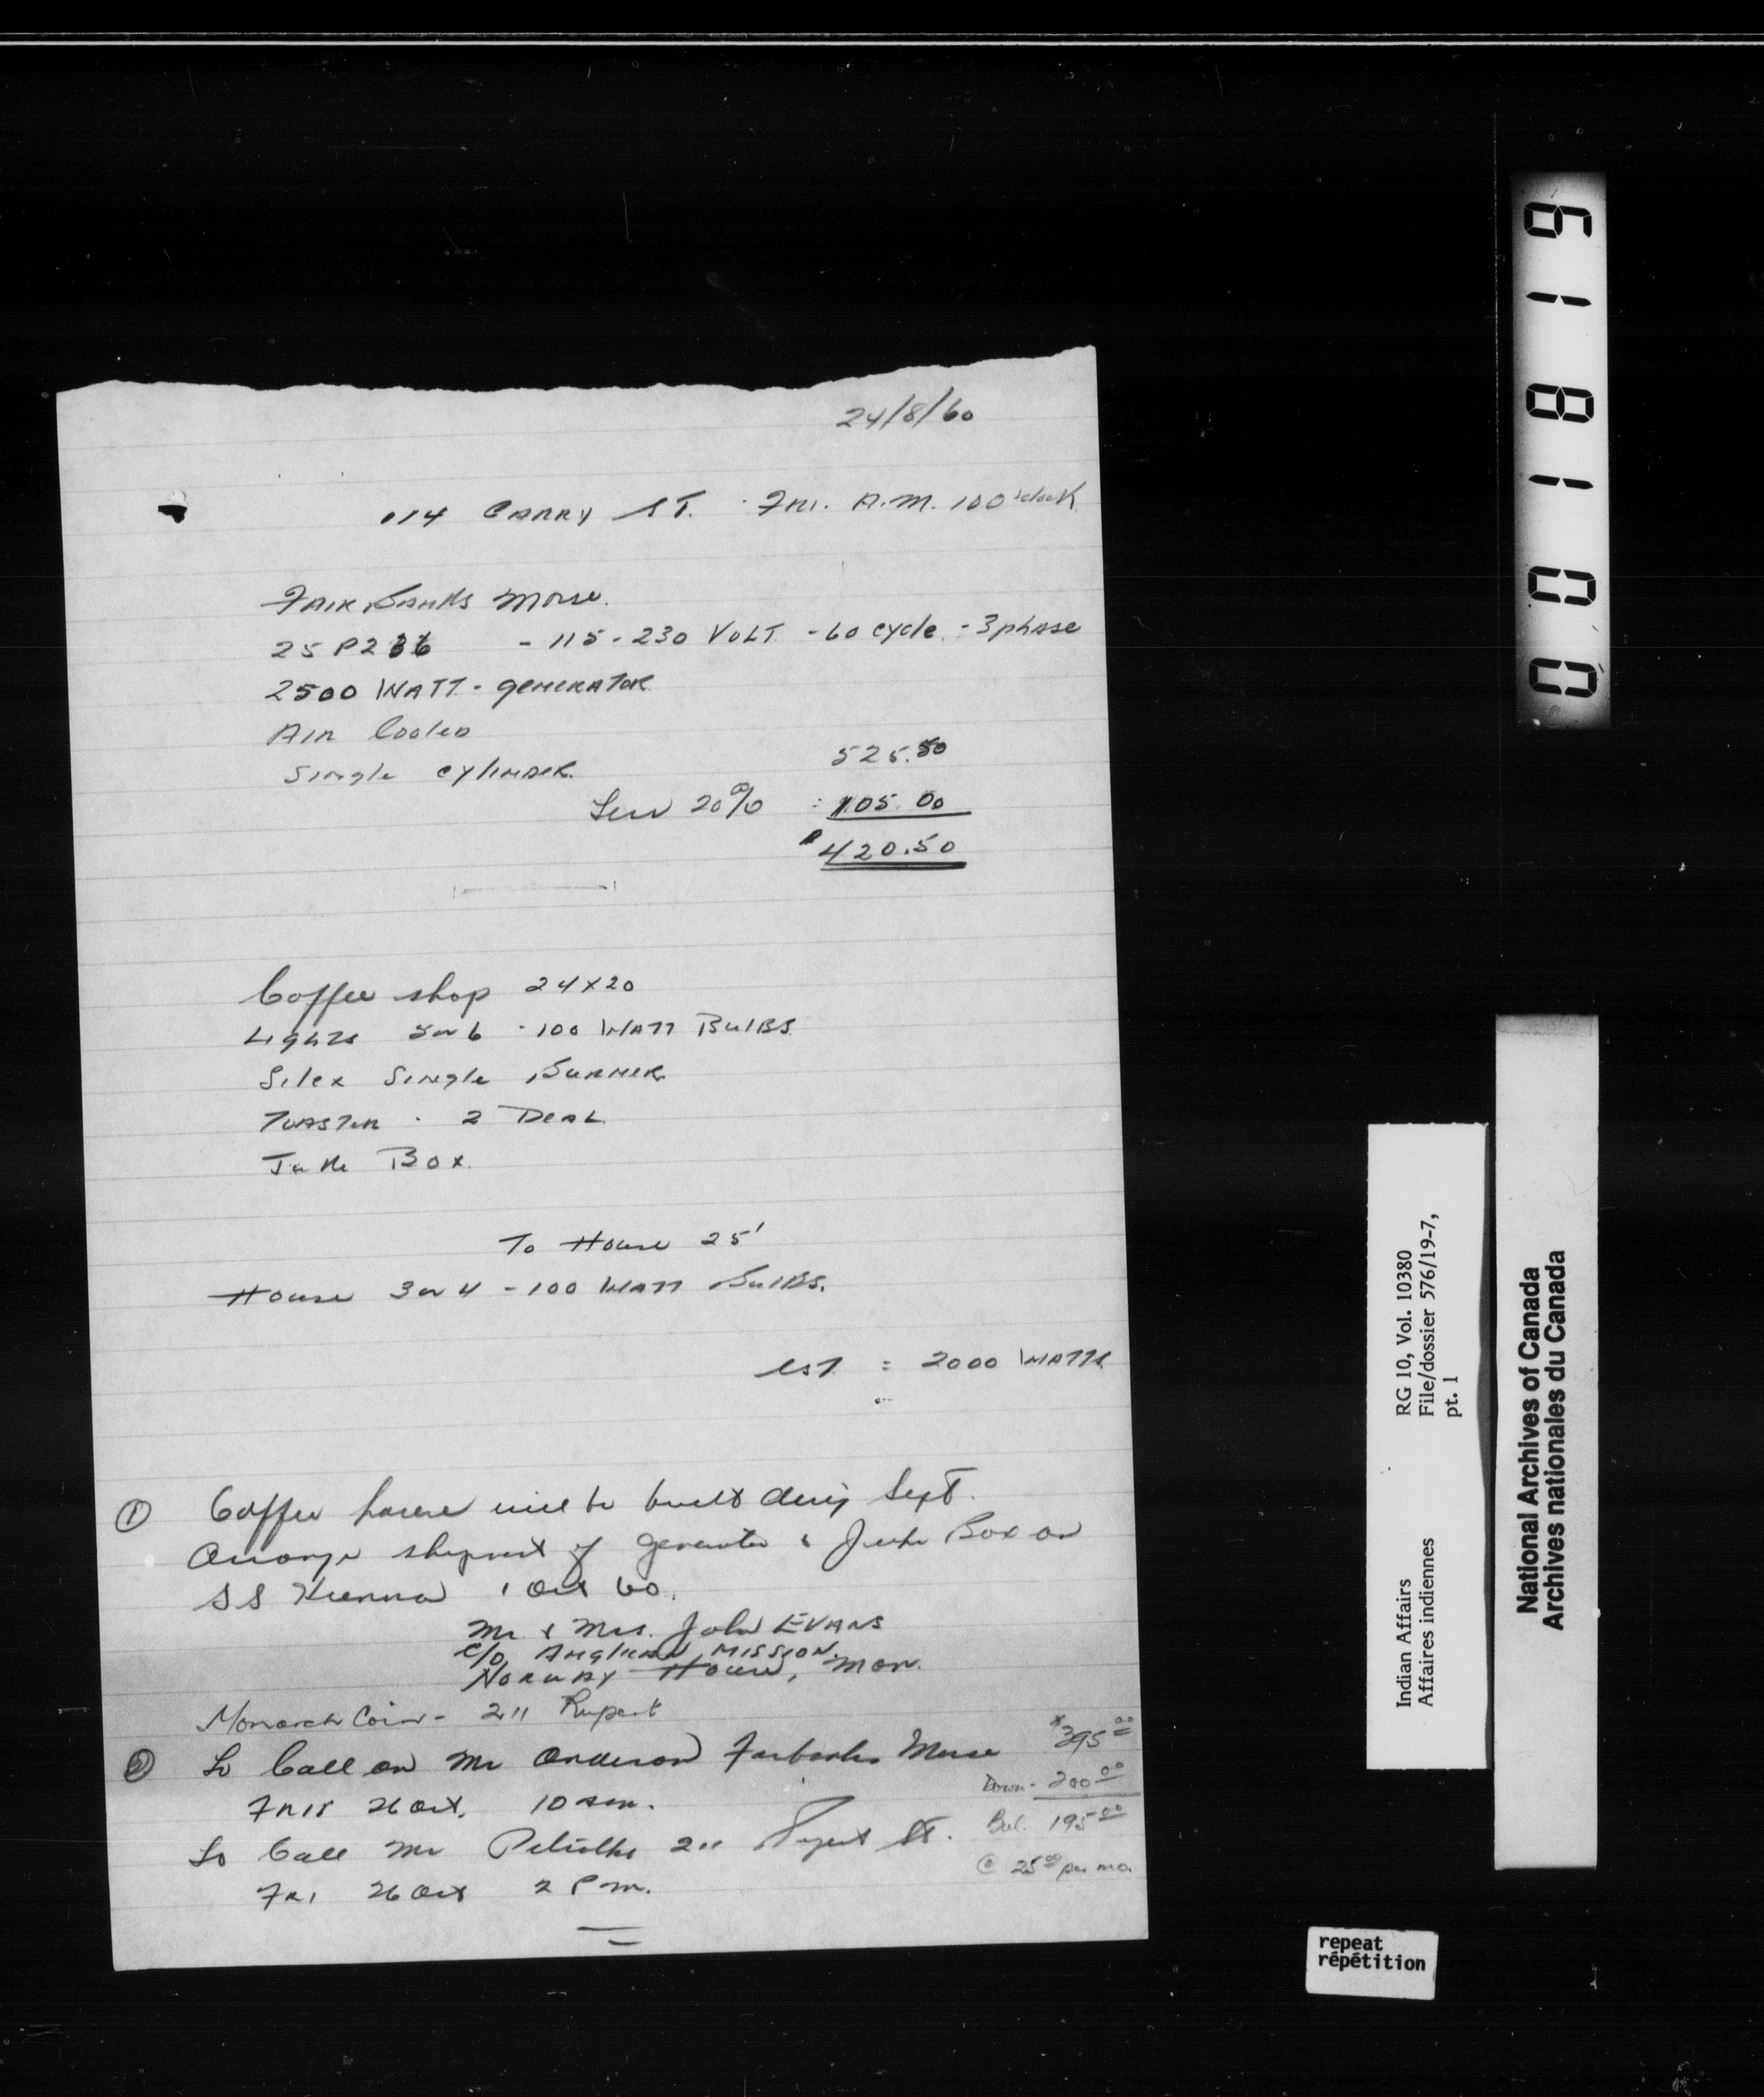 24/8/60
114 CARRY ST. Fri. A.M. 10 O'clock
Fairbanks Morse.
25 P236 - 115-230 VOLT - 60 cycle - 3 phase
2500 WATT - generator
Air Cooled
Single cylinder.
525.50
Less 20% : 105.00
$420.50
Coffee shop 24x20
Lights 5 or 6 - 100 WATT BULBS.
Silex Single Burner
Toaster - 2 Deal
Juke Box.
To House 25'
House 3 or 4 - 100 WATT Bulbs.
est = 2000 WATTS
① Coffee house will be built during Sept.
Arrange shipment of generator & Juke Box on
SS Keenora 1 Oct 60.
Mr & Mrs. John EVANS
c/o Anglican MISSION.
Norway House, Man.
Monarch Coin - 211 Rupert
② To Call on Mr Anderson Fairbanks Morse
Fri 26 Oct. 10 am.
To Call Mr 211 Rupert St.
Fri 26 Oct 2 Pm.
$395.00
Down - 200.00
Bal. 195.00
@ 25.00 per mo.
0001819
Indian Affairs RG 10, Vol. 10380
Affaires indiennes File/dossier 576/19-7,
pt. 1
National Archives of Canada
Archives nationales du Canada
repeat
répétition